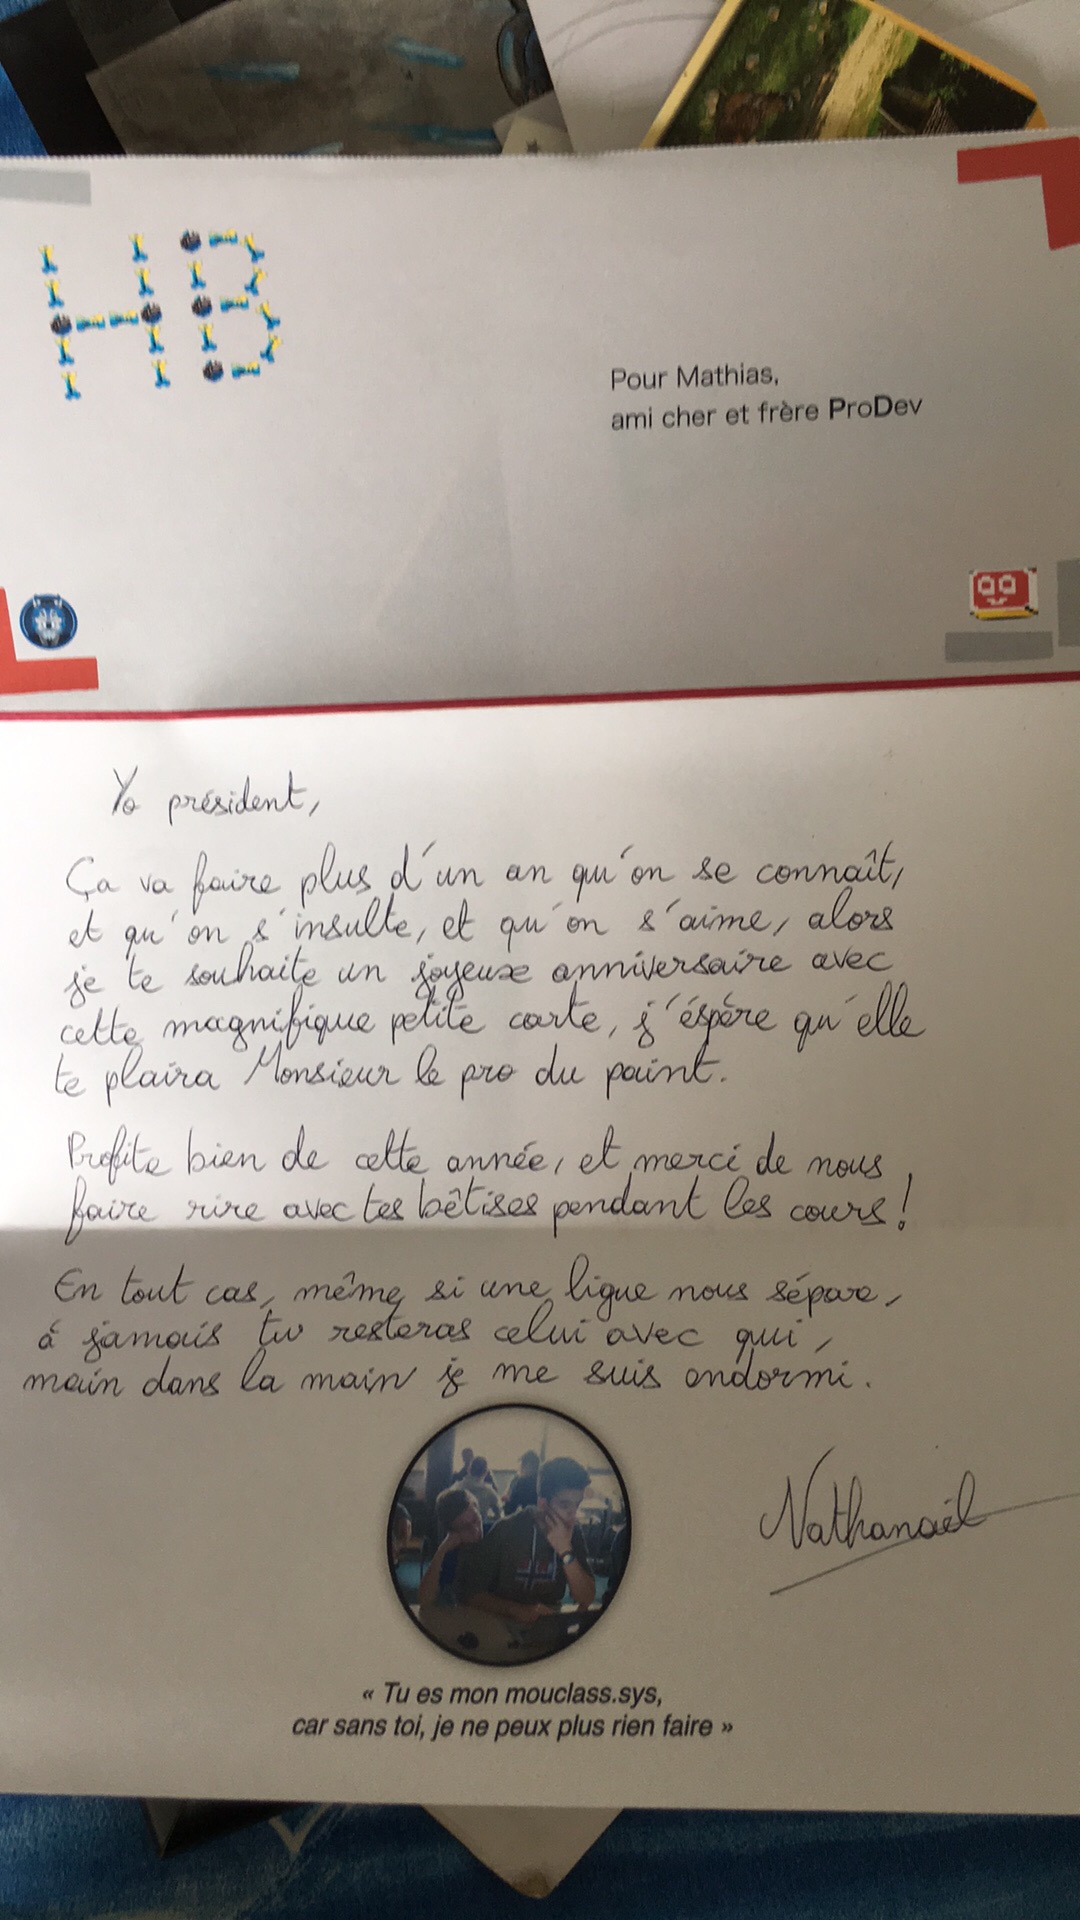 HB
Pour Mathias,
ami cher et frère ProDev
Yo président,
Ça va faire plus d'un an qu'on se connaît,
et qu'on s'insulte, et qu'on s'aime, alors
je te souhaite un joyeux anniversaire avec
cette magnifique petite carte, j'éspère qu'elle
te plaira Monsieur le pro du paint.
Profite bien de cette année, et merci de nous
faire rire avec tes bêtises pendant les cours !
En tout cas, même si une ligue nous sépare,
à jamais tu resteras celui avec qui,
main dans la main je me suis endormi.
Nathanaël
« Tu es mon mouclass.sys,
car sans toi, je ne peux plus rien faire »